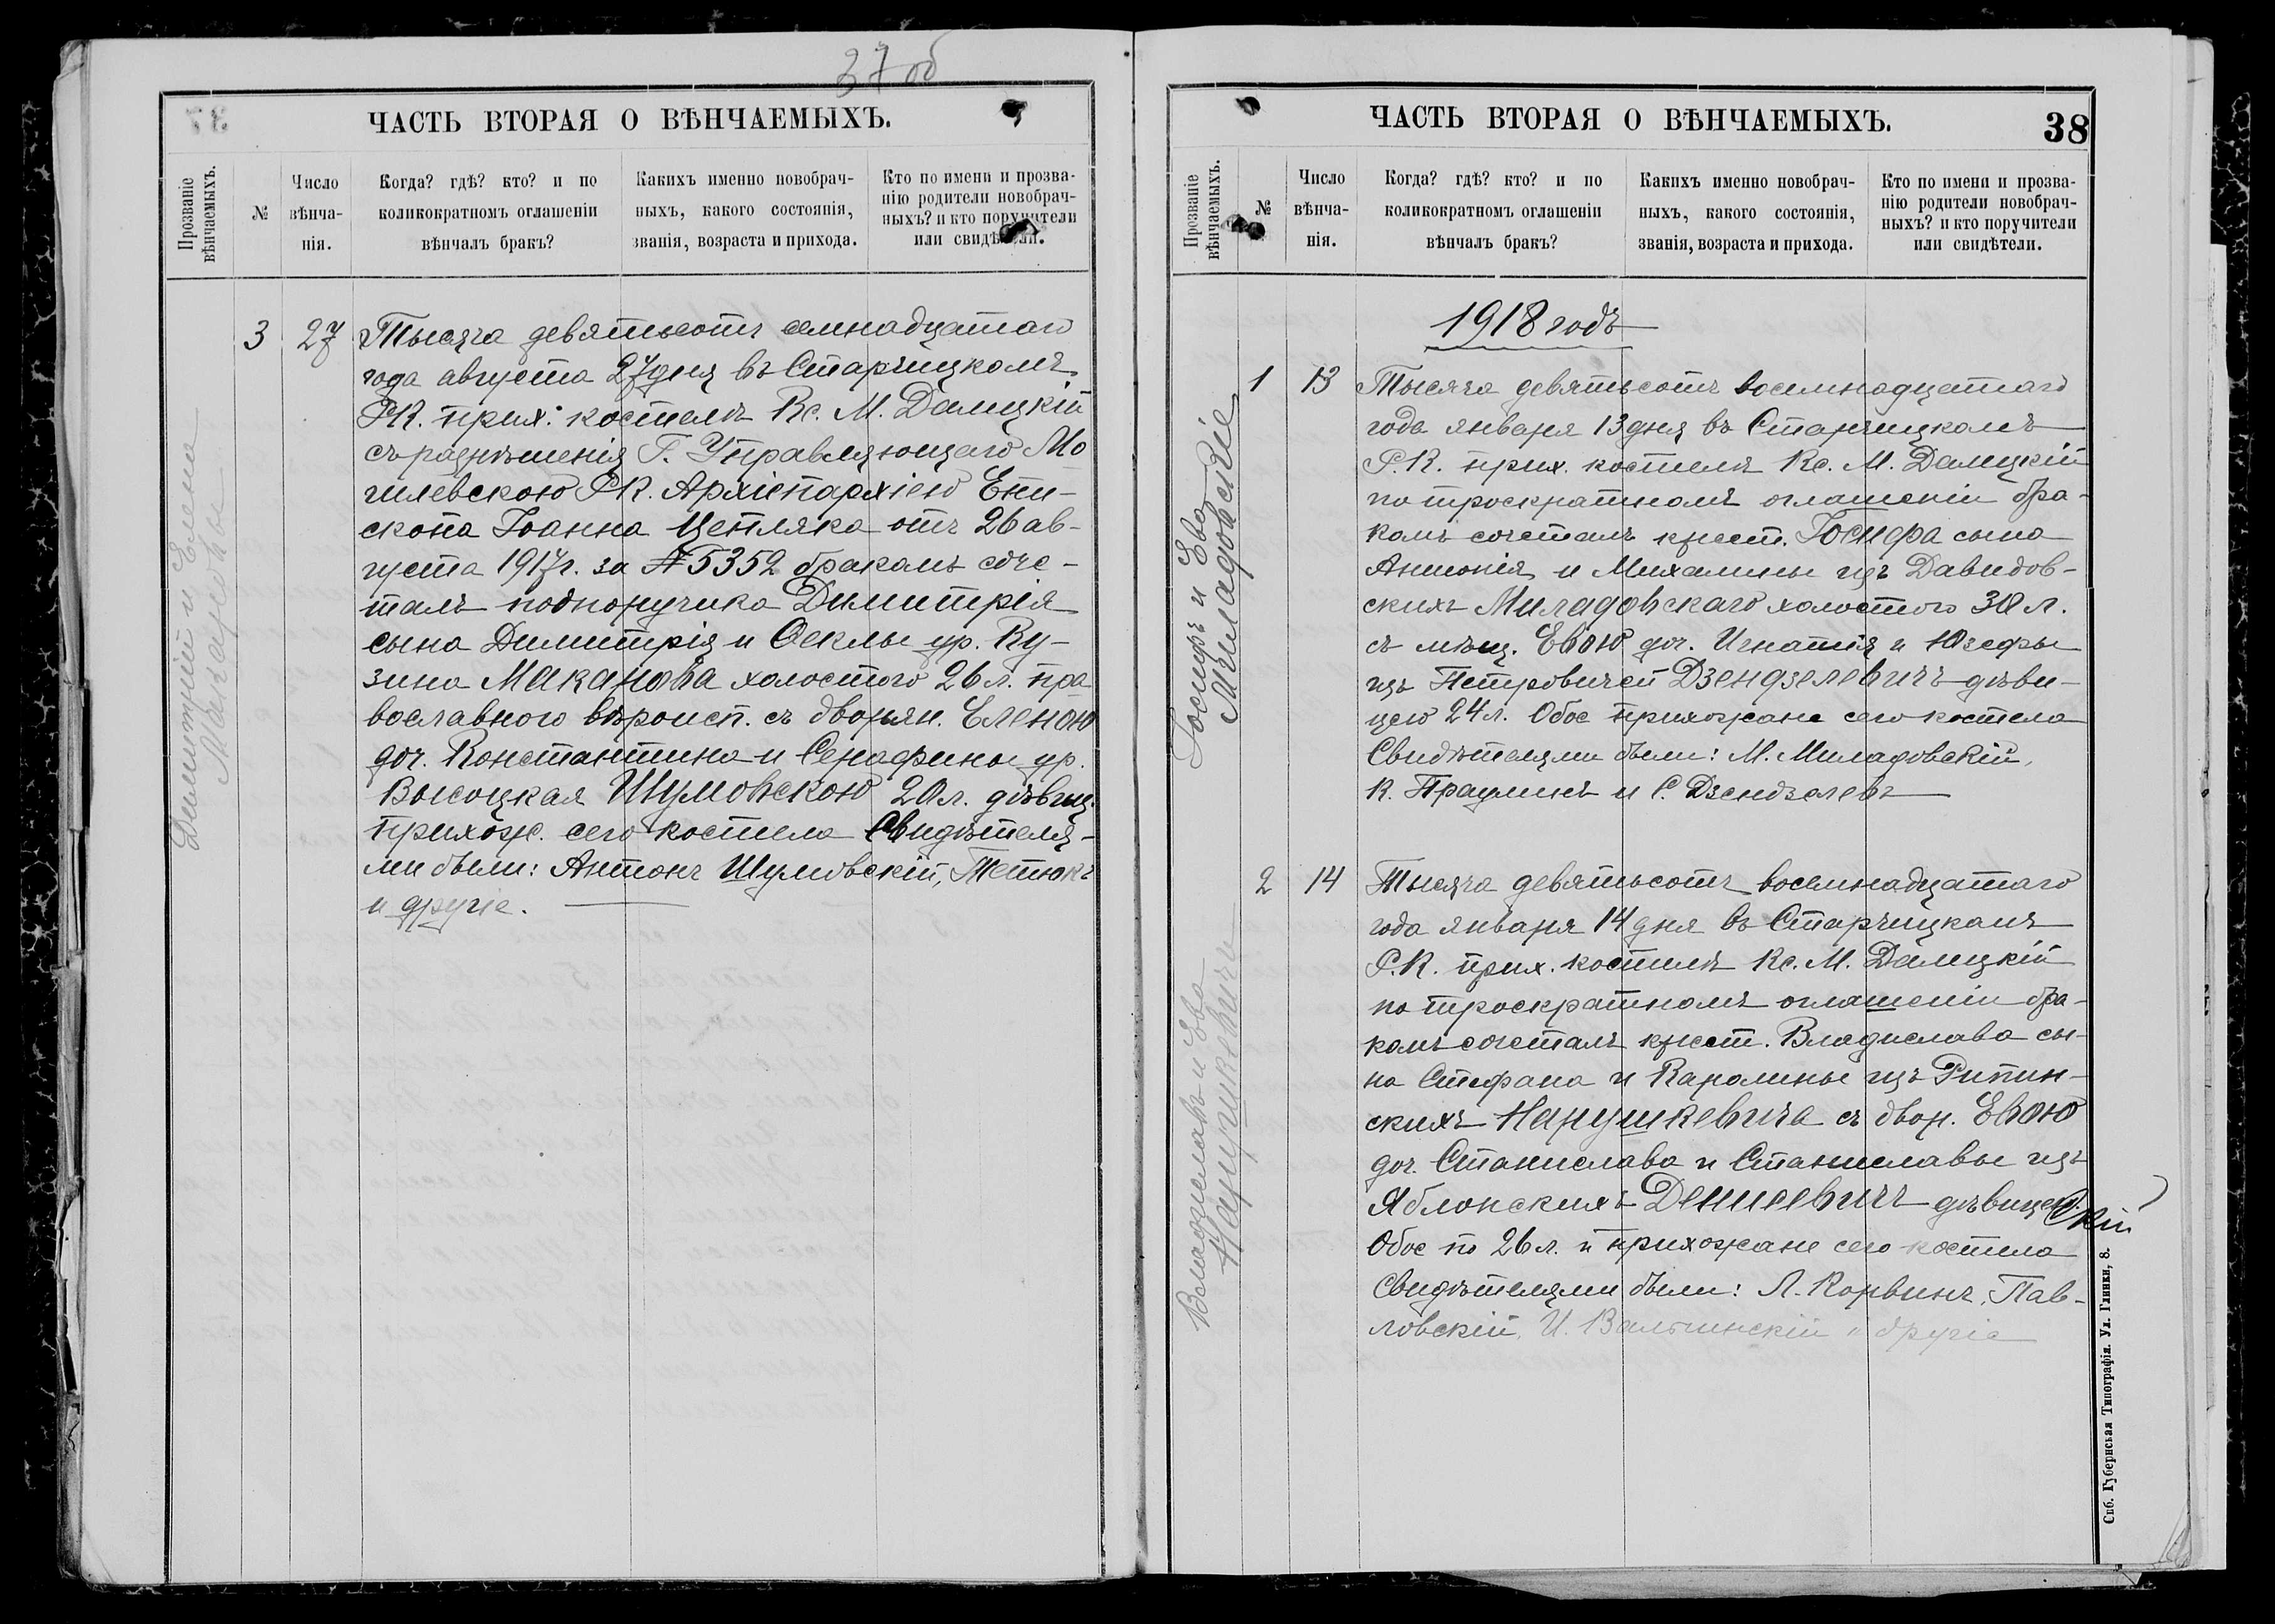 37 об
ЧАСТЬ ВТОРАЯ О ВѢНЧАЕМЫХЪ.
Прозваніе вѣнчаемыхъ.
№
Число вѣнча-нія.
Когда? гдѣ? кто? и по коликократномъ оглашеніи вѣнчалъ бракъ?
Какихъ именно новобрач-ныхъ, какого состоянія, званія, возраста и прихода.
Кто по имени и прозва-нію родители новобрач-ныхъ? и кто поручители или свидѣтели.
Димитрій и Елена
Макановы
3 27 Тысяча девятьсотъ семнадцатаго
года августа 27 дня въ Старчицкомъ
Р.К. прих: костелѣ Кс. М. Далецкій
съ разрѣшенія Г. Управляющаго Мо
гилевскою Р.К. Архіепархіею Епи-
скопа Іоанна Цепляка отъ 26 ав-
густа 1917г. за № 5352 бракомъ соче-
талъ подпоручика Димитрія
сына Димитрія и Феклы ур. Ку-
зина Маканова холостого 26 л. пра
вославного вѣроисп. съ дворян. Еленою
доч. Константина и Серафины ур.
Высоцкая Шумовскою 20 л. дѣвиц.
прихож. сего костела Свидѣтеля-
ми были: Антонъ Шумовскій, Тетюкъ
и другіе.
ЧАСТЬ ВТОРАЯ О ВѢНЧАЕМЫХЪ.
38
Прозваніе вѣнчаемыхъ.
№
Число вѣнча-нія.
Когда? гдѣ? кто? и по коликократномъ оглашеніи вѣнчалъ бракъ?
Какихъ именно новобрач-ныхъ, какого состоянія, званія, возраста и прихода.
Кто по имени и прозва-нію родители новобрач-ныхъ? и кто поручители или свидѣтели.
1918 годъ
Іосифъ и Ева
Миладовскіе
1 13 Тысяча девятьсотъ восемнадцатаго
года января 13 дня въ Старчицкомъ
Р.К. прих. костелѣ Кс. М. Далецкій
по троекратномъ оглашеніи бра-
комъ сочеталъ крест. Іосифа сына
Антонія и Михалины изъ Давидов-
скихъ Миладовскаго холостого 30 л.
съ мѣщ. Евою доч. Игнатія и Юзефы
изъ Петровичей Дзендзелевичъ дѣви-
цею 24 л. Обое прихожане сего костела
Свидѣтелями были: М. Миладовскій,
К. Праулинъ и С. Дзендзелевъ
Владиславъ и Ева
Нарушкевичи
2 14 Тысяча девятьсотъ восемнадцатаго
года января 14 дня въ Старчицкомъ
Р.К. прих. костелѣ Кс. М. Далецкій
по троекратномъ оглашеніи бра-
комъ сочеталъ крест. Владислава сы-
на Стефана и Каролины изъ Рипин-
скихъ Нарушкевича съ двор. Евою
доч. Станислава и Станиславы изъ
Яблонскихъ Денисевичъ дѣвицею
Обое по 26 л. и прихожане сего костела
Свидѣтелями были: Л. Корвинъ, Пав-
ловскій, И. Вальчинскій и другіе
Спб. Губернская Типографія. Ул. Глинки, 8.